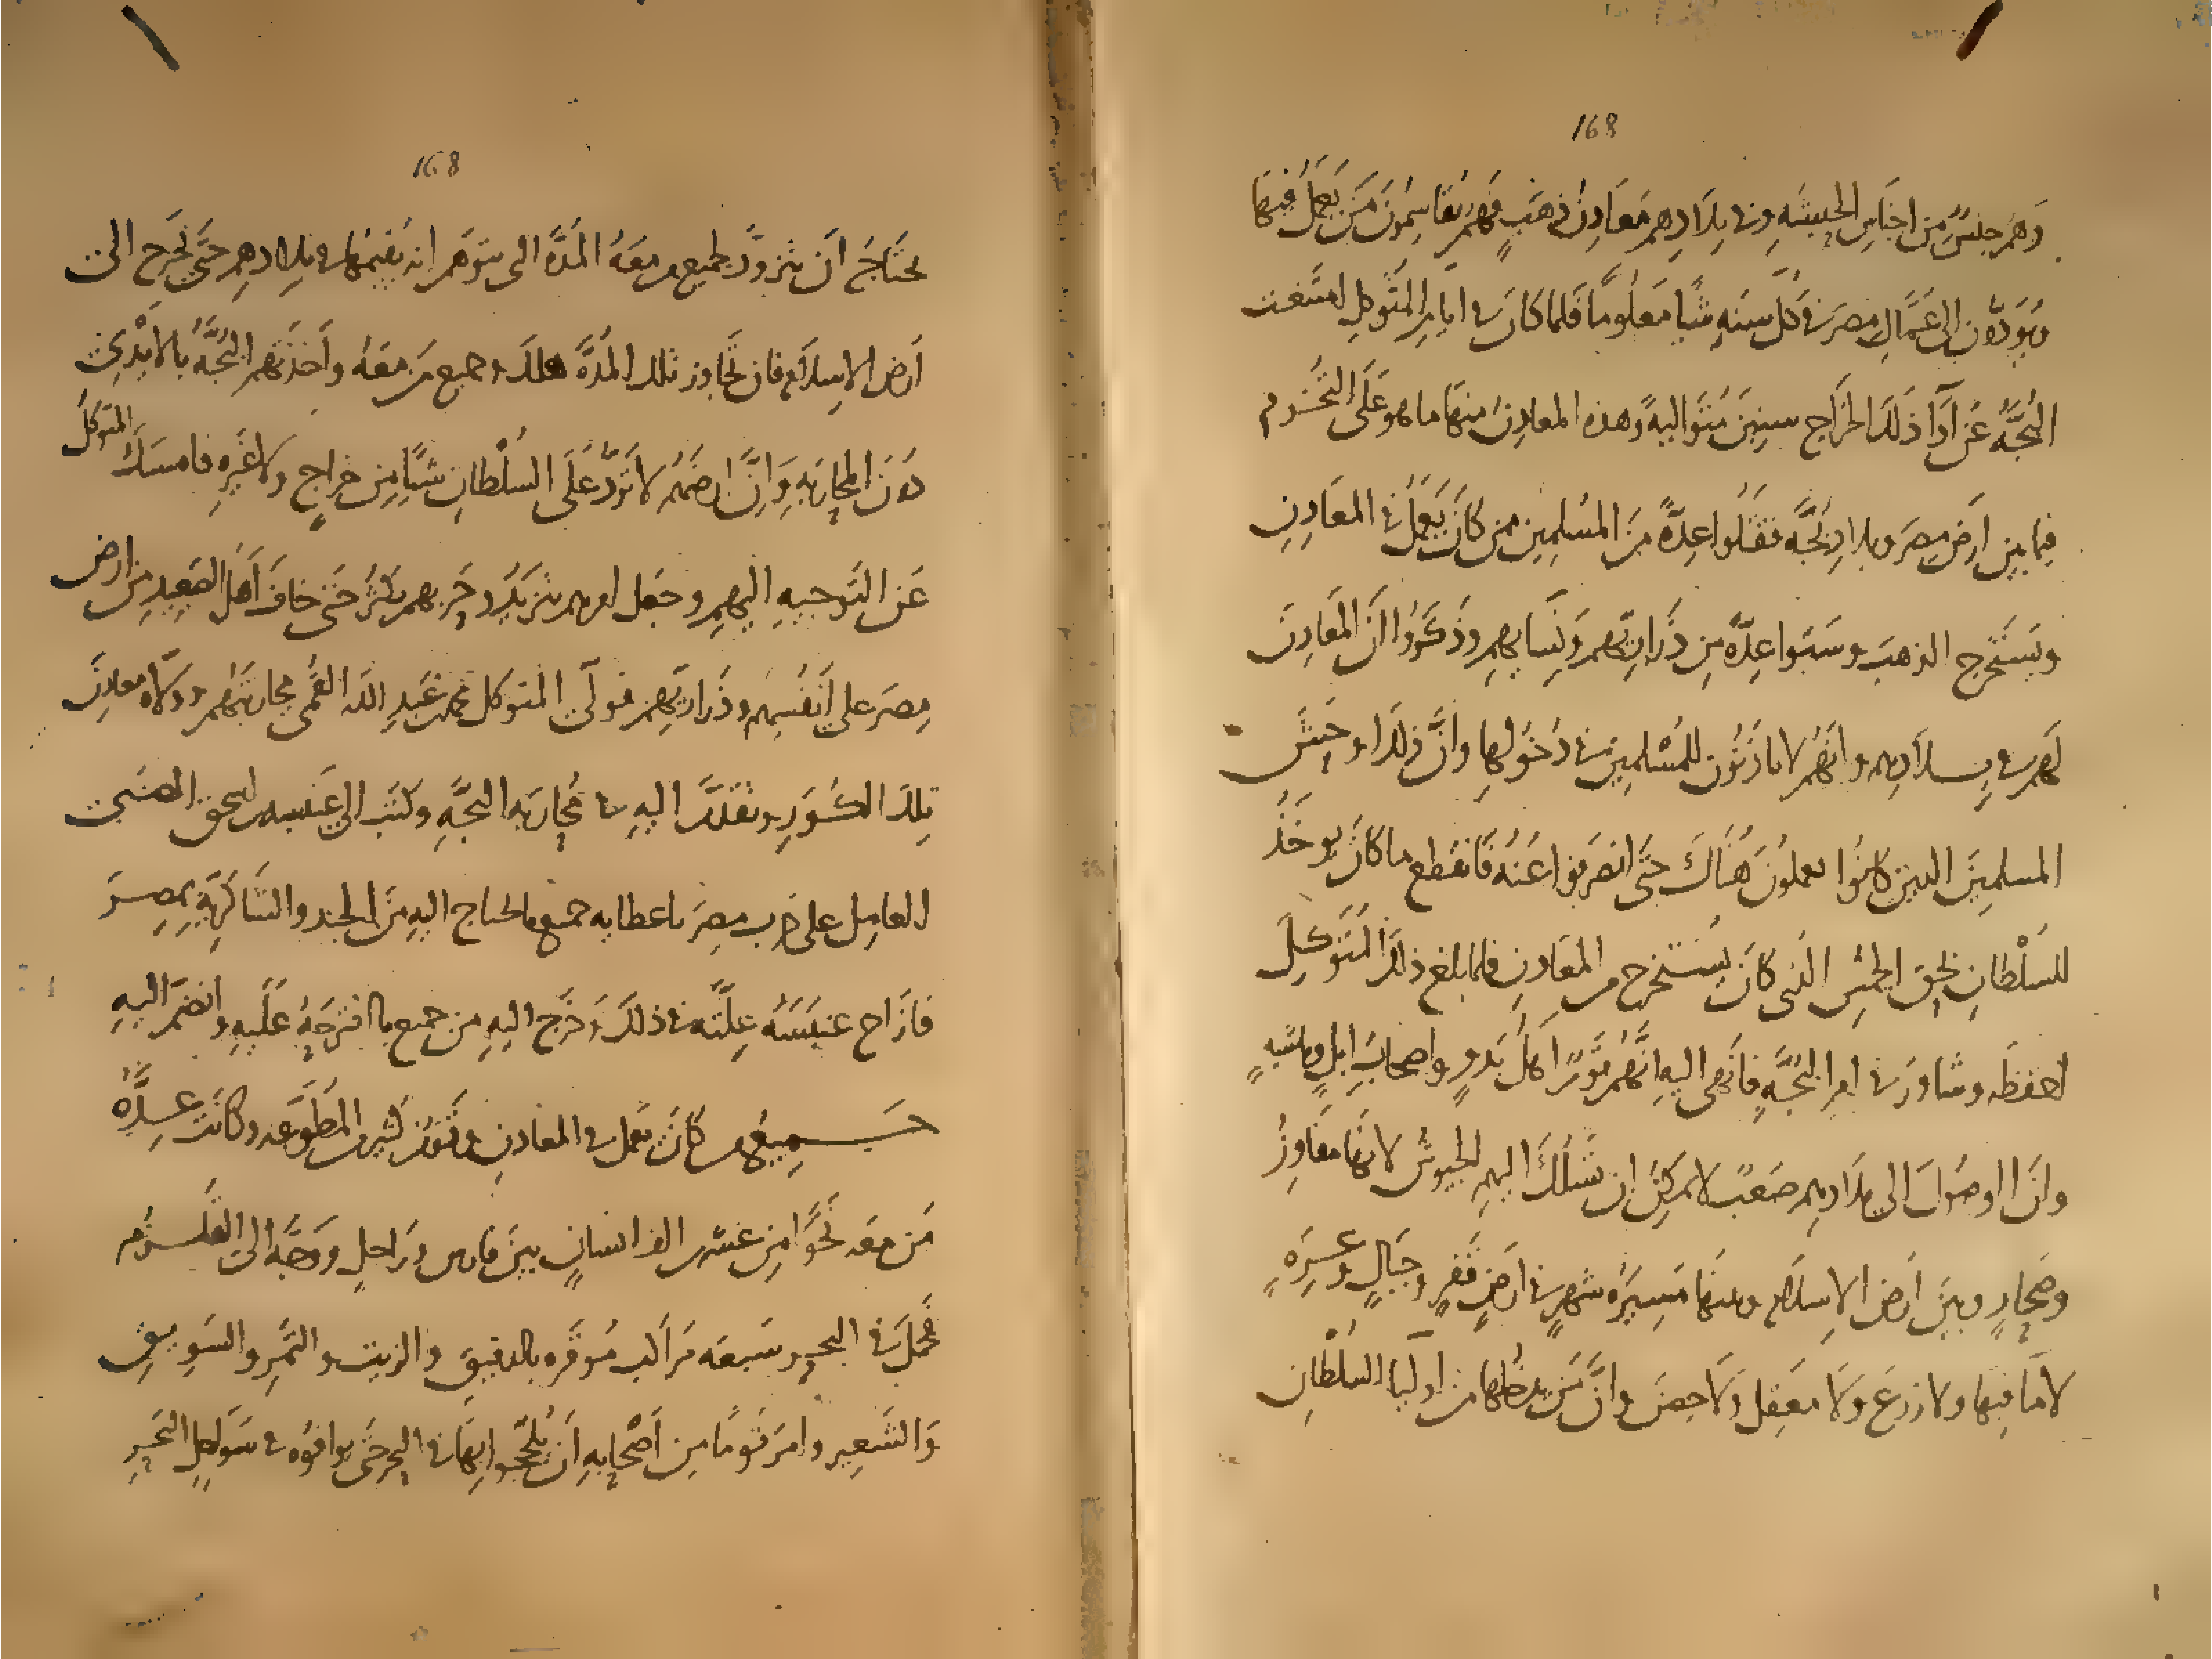 168
وَهُمْ جِنسٌ مِن اجنَاسِ الحَبَشَهِ وفى بِلَادِهِم مَعَادِنُ ذهَبٍ فَهُم يُقَاسِمُونَ مَن يَعمَلُ فِيهَا
وَيُوَدُّون الى عُمَّالِ مِصرَ فى كل سَنهٍ شيًا مَعلُومًا فَلما كان فى ايام المتَوكلِ امتَنعت
البُجَّهُ عَن اَدَا ذلكَ الخرَاج سِنِينَ مُتَوَاليهً وهذه المعادِنُ منهَا ما هو عَلَى التخُوم
فيما بين اَرضِ مِصرَ وبلادِ البُجَّه فقَتَلُوا عِدَّهً مِنَ المسُلِمِين ممن كَانَ يَعمَلُ فى المعَادِنِ
ويَستَخرج الذهبَ وسَبَوا عِدَّهً مِن ذَرَارِيّهم وَنِسَايهم وذَكَرُوا انَّ المَعَادِنَ
لَهم فى بِلادِهم وانَّهُم لا ياذَنُون للمُسْلمِين فى دُخُولِها وانَّ ذلكَ اوحَشَ
المسلمِينَ الذين كَانُوا يعملوُنَ هُنَاكَ حَتى انصَرَفوا عَنهُ فَانقطع ما كان يوخَذُ
للسُلْطَانِ بحق الخُمسِ الذى كان يُستخرج من المعَادِنِ فلما بلغ ذلكَ المُتَوكِلَ
احفَظَه وشاورَ فى امرِ البُجَّهِ فَانهى اليهِ انَّهُم قَومٌ اهلُ بَدوٍ واصحَابُ ابلٍ وماشيهٍ
وانَّ الوصُولَ الى بلادِهم صَعبٌ لا يمكِنُ ان تَسلُكَ اليهِم الجيوشُ لانهَا مفَاوِزُ
وصَحَارٍ وبينَ اَرضِ الاِسلَامِ وبينهَا مَسِيرَهُ شهرٍ فى ارضٍ قَفرٍ وجبَالٍ وعِرَهٍ
لا مَا فيها ولا زرعَ وَلَا مَعقِلَ وَلَا حِصنَ وانَّ مَن يدخلُها من اوليَا السُلْطَانِ
168
يحتَاجُ اَن يتزوّدَ لجميع من معَهُ المُدَّهَ التى يتوَهم انه يُقيمُهَا فى بلادِهِم حَتّى يخرُج الى
اَرضِ الاِسلَامِ فان تَجاوز تلك المُدَّهَ هلك وجميع مَن مَعَهُ وَاَخذَتهُم البُجَّهُ بالاَيْدِى
دُونَ المحَارَبَهِ وَانَّ ارضَهُم لا تَرُدُّ عَلَى السُلْطانِ شيًا مِن خرَاجٍ ولا غَيرِهِ فامسَكَ المتوكلُ
عَن التَوجيهِ اليهِم وجعَل امرهم يتزَيّدُ وجَريهم يكثُر حَتى خافَ اَهلُ الصَعِيدِ مِن ارضِ
مِصرَ على اَنفُسِهم وذَراريّهِم فولّى المتوكل محمد بن عَبدِ الله القُمّى محاربتَهُم وولّاه معادنَ
تِلكَ الكُوَرِ وتقدَّمَ اليهِ فى مُحَارَبَه البُجَّهِ وكتَب الى عَنبسه بن اسحق الضبى
العامِل على حَرب مِصرَ باعطايه جميع ما يحتاج اليهِ مِنَ الجند والشَاكِرِيّهِ بِمِصرَ
فَازَاح عنبَسَهُ عِلّتَه فى ذلكَ وَخرَج اليهِ من جميع ما اقترحَهُ عَلَيهِ وانضَمَ اليهِ
جَمِيعُ من كَانَ يعمَل فى المعَادِنِ وقَومٌ كثير من المُطَوّعَهِ وكَانَت عِدَّهُ
مَن معَه نَحوًا مِن عشرين الف انسانٍ بينَ فَارسٍ ورَاجلٍ ووَجَّهَ الى القُلزُم
فَحُمِلَ فى البحرِ سَبعَه مَرَاكب مُوقَرَه بالدقيقِ والزيت والتَمرِ والسَوِيقِ
وَالشَعِيرِ وامَرَ قَومًا مِن اَصْحَابِهِ اَن يُلَجِّجوا بِهَا فى البحرِ حَتى يوافُوهُ فى سَوَاحِلِ البَحرِ